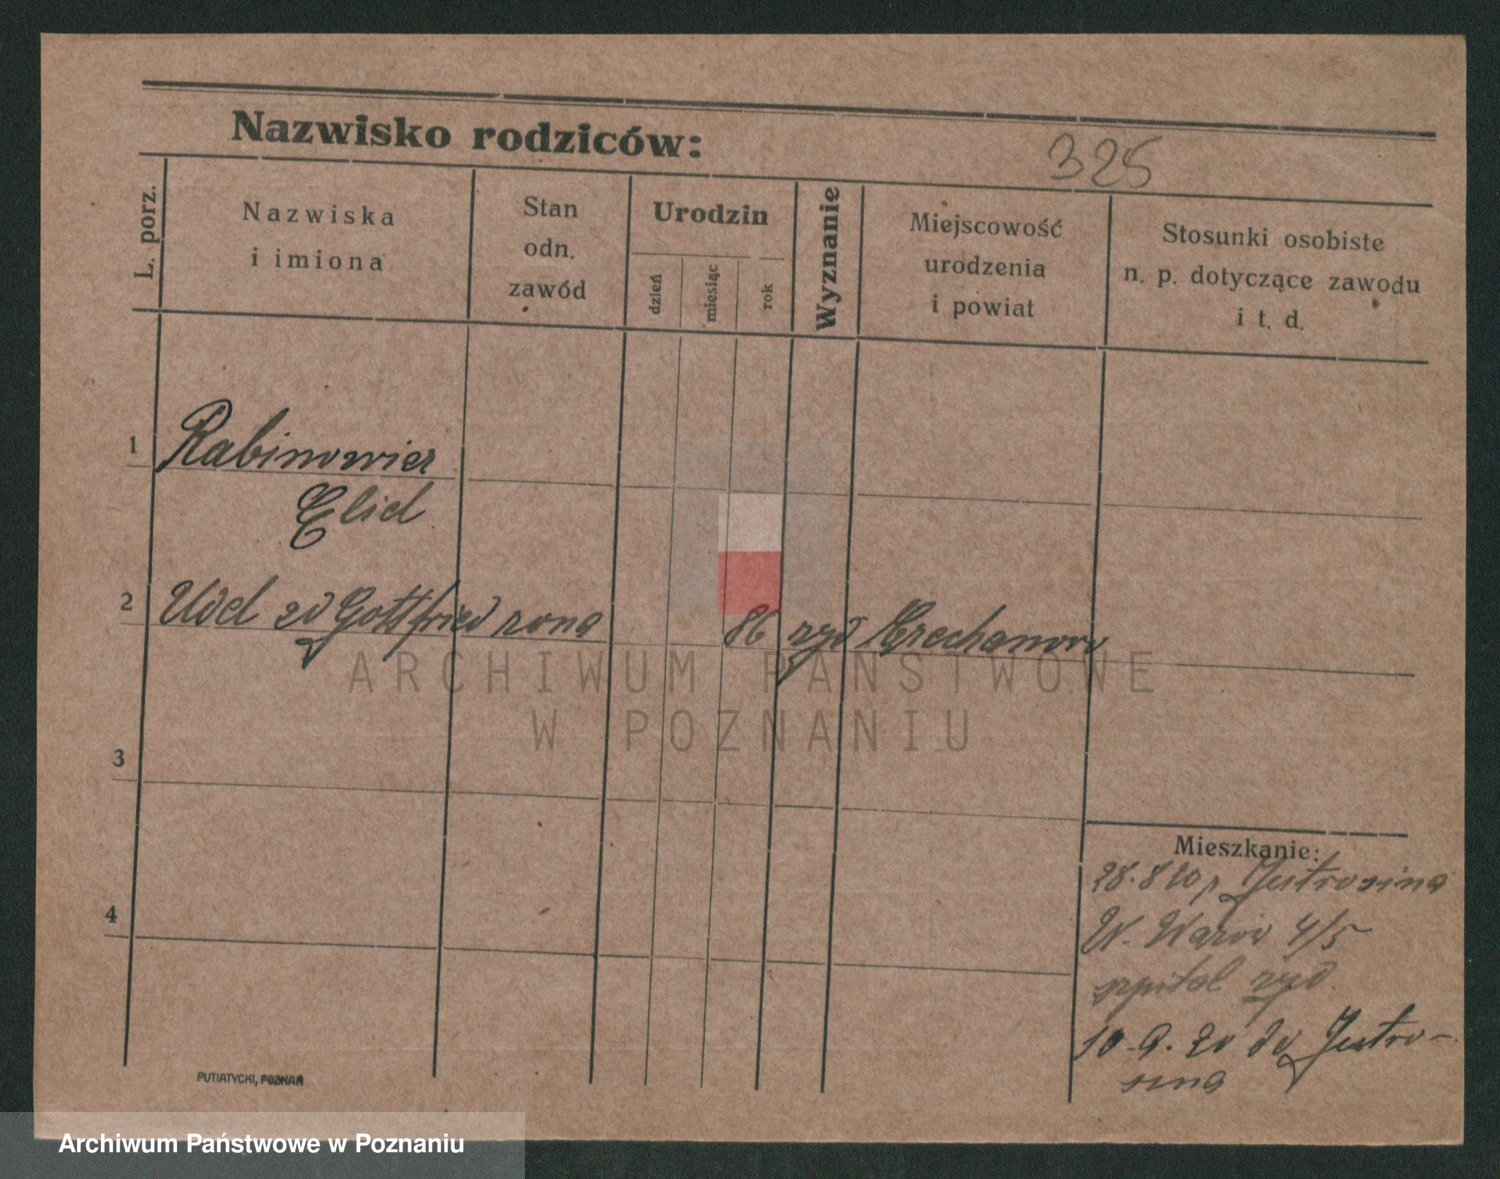 Nazwisko rodziców:
325
L. porz.
Nazwiska
i imiona
Stan
odn.
zawód
Urodzin
dzień
miesiąc
rok
Wyznanie
Miejscowość
urodzenia
i powiat
Stosunki osobiste
n. p. dotyczące zawodu
i t. d.
1 Rabinowicz
2 Udel zd Gottfried żona 86 żyd
3
4
Mieszkanie:
28.8 20
W. Garb 4/5
szpital żyd.
10.9.20 do Jutro-
sina
PUTIATYCKI, POZNAŃ
ARCHIWUM PAŃSTWOWE
W POZNANIU
Archiwum Państwowe w Poznaniu